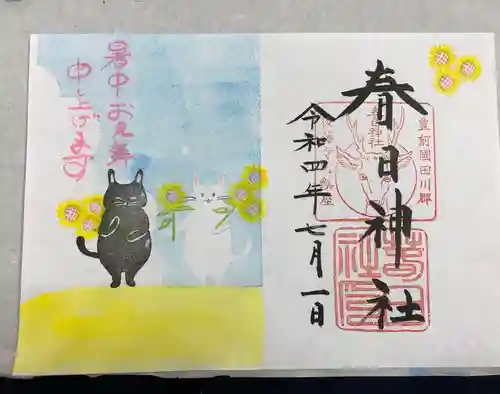 暑中お見舞
申し上げます
豊前國田川郡
春日神社
春日神社
令和四年七月一日